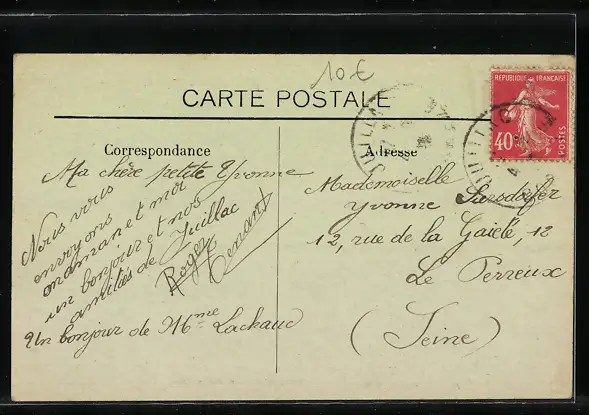 10 €
CARTE POSTALE
REPUBLIQUE FRANÇAISE
40c
POSTES
JUILLAC
JUILLAC
Correspondance
Adresse
Ma chère petite Yvonne
Nous vous
envoyons
maman et moi
un bonjour et nos
amitiés de Juillac
Roger
Un bonjour de Mme Lachaud
Mademoiselle
Yvonne
12, rue de la Gaiété, 12
Le Perreux
(Seine)